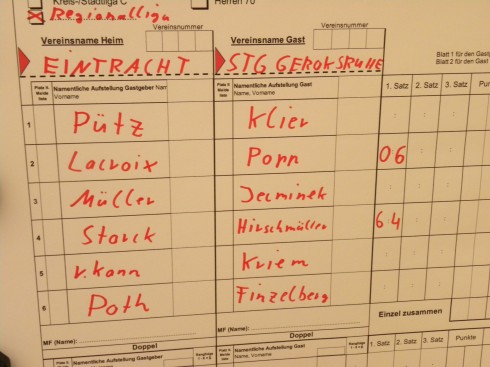 Kreis-/Stadtliga C
Herren 70
Regionalliga
Vereinsnummer
Vereinsnummer
Vereinsname Heim
Vereinsname Gast
Blatt 1 für den Gast
Blatt 2 für den Gast
EINTRACHT
STG GEROKSRUHE
Namentliche Aufstellung Gastgeber
Vorname
Namentliche Aufstellung Gast
Name, Vorname
1. Satz 2. Satz 3. Satz Punkte
1 Pütz Klier
2 Lacroix Porn 06
3 Müller Jecminek
4 Storck Hirschmüller 64
5 v. Kann Kriem
6 Poth Finzelberg
Einzel zusammen
MF (Name): MF (Name):
Doppel Doppel
Namentliche Aufstellung Gastgeber
Name, Vorname
Namentliche Aufstellung Gast
Name, Vorname
1. Satz 2. Satz 3. Satz Punkte